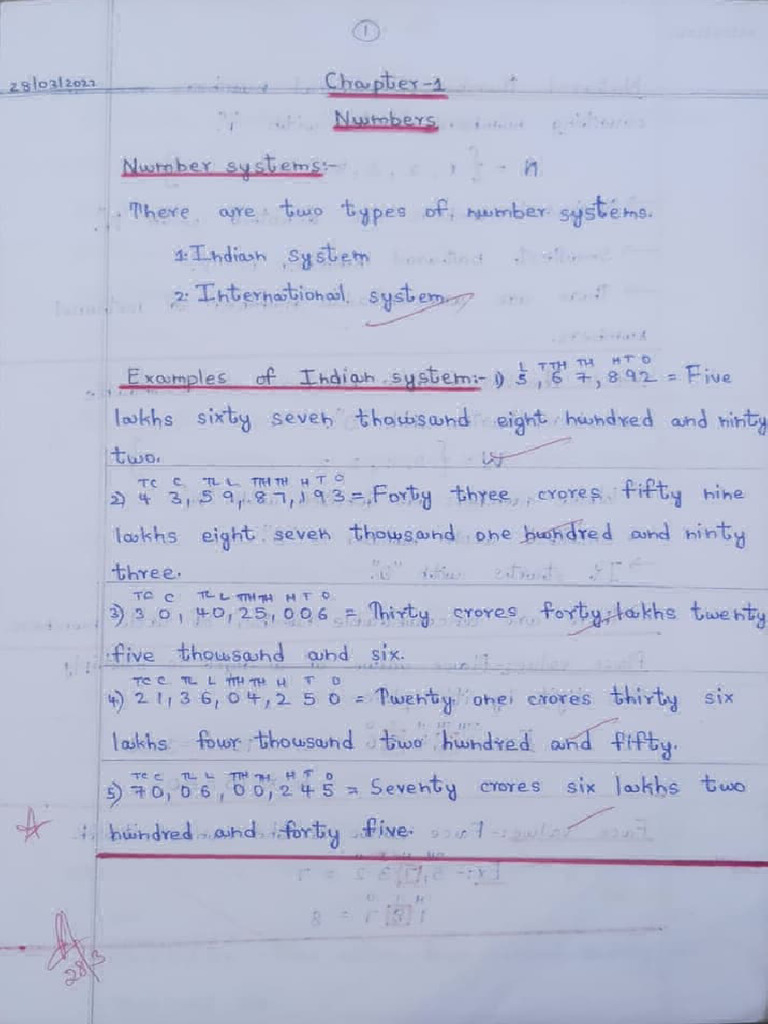 1
28/03/2022
Chapter-1
Numbers
Number systems:-
There are two types of number systems.
1. Indian system
2. International system
L TTH TH H T O
Examples of Indian system:- 1) 5,67,892 = Five
lakhs sixty seven thousand eight hundred and ninty
two.
TC C TL L TTH TH H T O
2) 43,59,87,193 = Forty three crores fifty nine
lakhs eight seven thousand one hundred and ninty
three.
TC C TL L TTH TH H T O
3) 30,40,25,006 = Thirty crores forty lakhs twenty
five thousand and six.
TC C TL L TTH TH H T O
4) 21,36,04,250 = Twenty one crores thirty six
lakhs four thousand two hundred and fifty.
TC C TL L TTH TH H T O
5) 70,06,00,245 = Seventy crores six lakhs two
hundred and forty five.
28/3